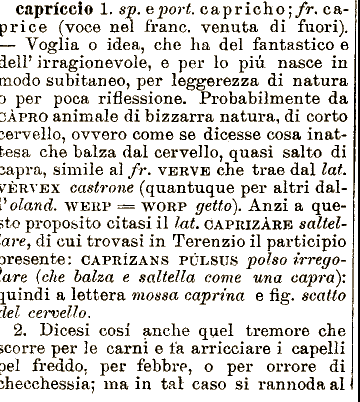 capríccio 1. sp. e port. capricho; fr. ca-
price (voce nel franc. venuta di fuori).
— Voglia o idea, che ha del fantastico e
dell' irragionevole, e per lo piú nasce in
modo subitaneo, per leggerezza di natura
o per poca riflessione. Probabilmente da
CÀPRO animale di bizzarra natura, di corto
cervello, ovvero come se dicesse cosa inat-
tesa che balza dal cervello, quasi salto di
capra, simile al fr. VERVE che trae dal lat.
VÈRVEX castrone (quantuque per altri dal-
l'oland. WERP = WORP getto). Anzi a que-
sto proposito citasi il lat. CAPRIZÀRE saltel-
lare, di cui trovasi in Terenzio il participio
presente: CAPRÍZANS PÚLSUS polso irrego-
lare (che balza e saltella come una capra):
quindi a lettera mossa caprina e fig. scatto
del cervello.
2. Dicesi cosí anche quel tremore che
scorre per le carni e fa arricciare i capelli
pel freddo, per febbre, o per orrore di
checchessia; ma in tal caso si rannoda al